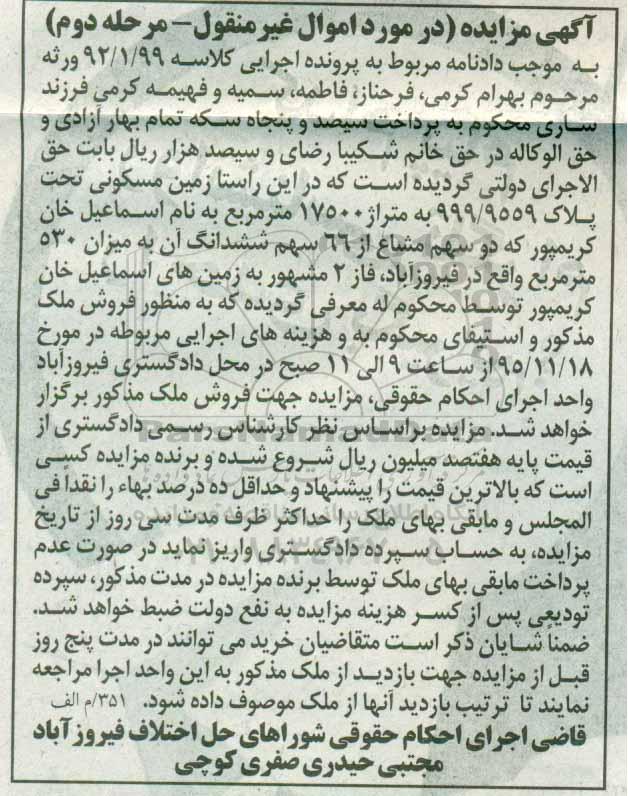 آگهی مزایده (در مورد اموال غیر منقول- مرحله دوم)
به موجب دادنامه مربوط به پرونده اجرایی کلاسه ۹۲/۱/۹۹ ورثه
مرحوم بهرام کرمی، فرحناز، فاطمه، سمیه و فهیمه کرمی فرزند
ساری محکوم به پرداخت سیصد و پنجاه سکه تمام بهار آزادی و
حق الوکاله در حق خانم شکیبا رضای و سیصد هزار ریال بابت حق
الاجرای دولتی گردیده است که در این راستا زمین مسکونی تحت
پلاک ۹۹۹/۹۵۵۹ به متراژ ۱۷۵۰۰ مترمربع به نام اسماعیل خان
کریمپور که دو سهم مشاع از ۶۶ سهم ششدانگ آن به میزان ۵۳۰
مترمربع واقع در فیروزآباد، فاز ۲ مشهور به زمین های اسماعیل خان
کریمپور توسط محکوم له معرفی گردیده که به منظور فروش ملک
مذکور و استیفای محکوم به و هزینه های اجرایی مربوطه در مورخ
۹۵/۱۱/۱۸ از ساعت ۹ الی ۱۱ صبح در محل دادگستری فیروزآباد
واحد اجرای احکام حقوقی، مزایده جهت فروش ملک مذکور برگزار
خواهد شد. مزایده براساس نظر کارشناس رسمی دادگستری از
قیمت پایه هفتصد میلیون ریال شروع شده و برنده مزایده کسی
است که بالاترین قیمت را پیشنهاد و حداقل ده درصد بهاء را نقداً فی
المجلس و مابقی بهای ملک را حداکثر ظرف مدت سی روز از تاریخ
مزایده، به حساب سپرده دادگستری واریز نماید در صورت عدم
پرداخت مابقی بهای ملک توسط برنده مزایده در مدت مذکور، سپرده
تودیعی پس از کسر هزینه مزایده به نفع دولت ضبط خواهد شد.
ضمناً شایان ذکر است متقاضیان خرید می توانند در مدت پنج روز
قبل از مزایده جهت بازدید از ملک مذکور به این واحد اجرا مراجعه
نمایند تا ترتیب بازدید آنها از ملک موصوف داده شود. ۳۵۱/م الف
قاضی اجرای احکام حقوقی شوراهای حل اختلاف فیروزآباد
مجتبی حیدری صفری کوچی